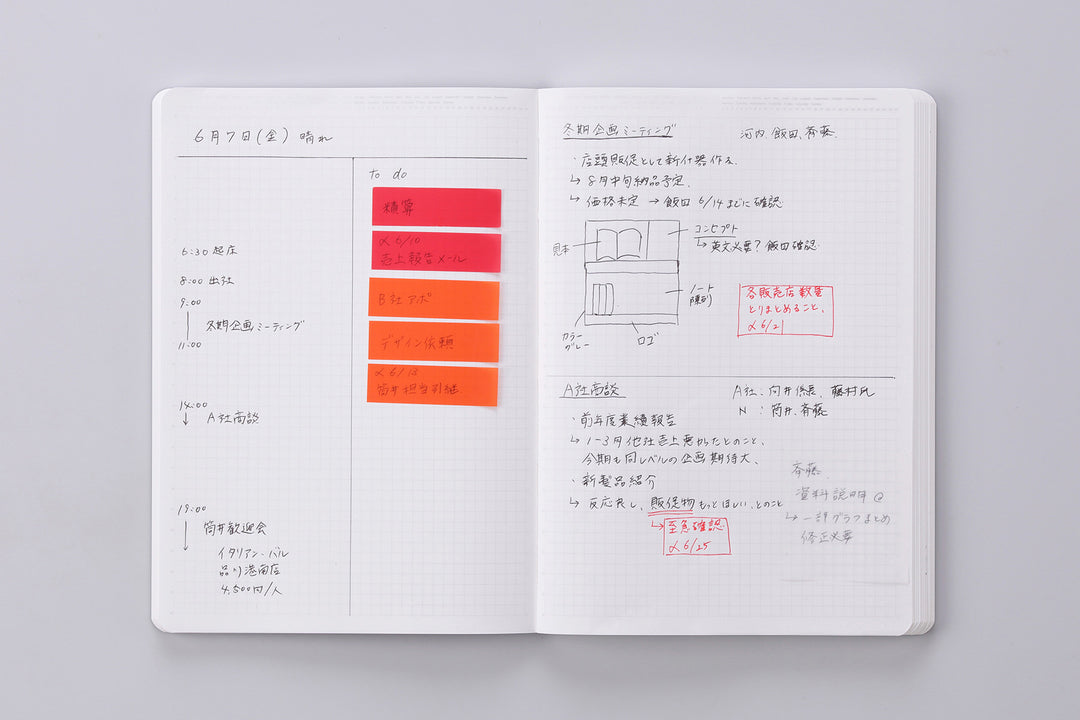 6月7日(金) 晴れ
6:30 起床
8:00 出社
9:00
冬期企画ミーティング
11:00
14:00
A社商談
19:00
筒井歓迎会
イタリアン・バル
品川港南店
4,500円/人
to do
積算
〆6/10
売上報告メール
B社アポ
デザイン依頼
〆6/13
筒井担当引継
冬期企画ミーティング
河内、飯田、斉藤
・店頭販促として新什器作る。
↳ 8月中旬納品予定。
↳ 価格未定 → 飯田 6/14までに確認
見本
コンセプト
↳ 英文必要? 飯田確認
ノート
陳列
カラー
グレー
ロゴ
各販売店数量
とりまとめること、
〆6/21
A社商談
A社:向井係長、藤村氏
N :筒井、斉藤
・前年度業績報告
↳ 1-3月他社売上悪かったとのこと、
今期も同レベルの企画期待大、
・新製品紹介
↳ 反応良し、販促物もっとほしい、とのこと
↳ 至急確認
〆6/25
斉藤
資料説明
↳ 一部グラフまとめ
修正必要